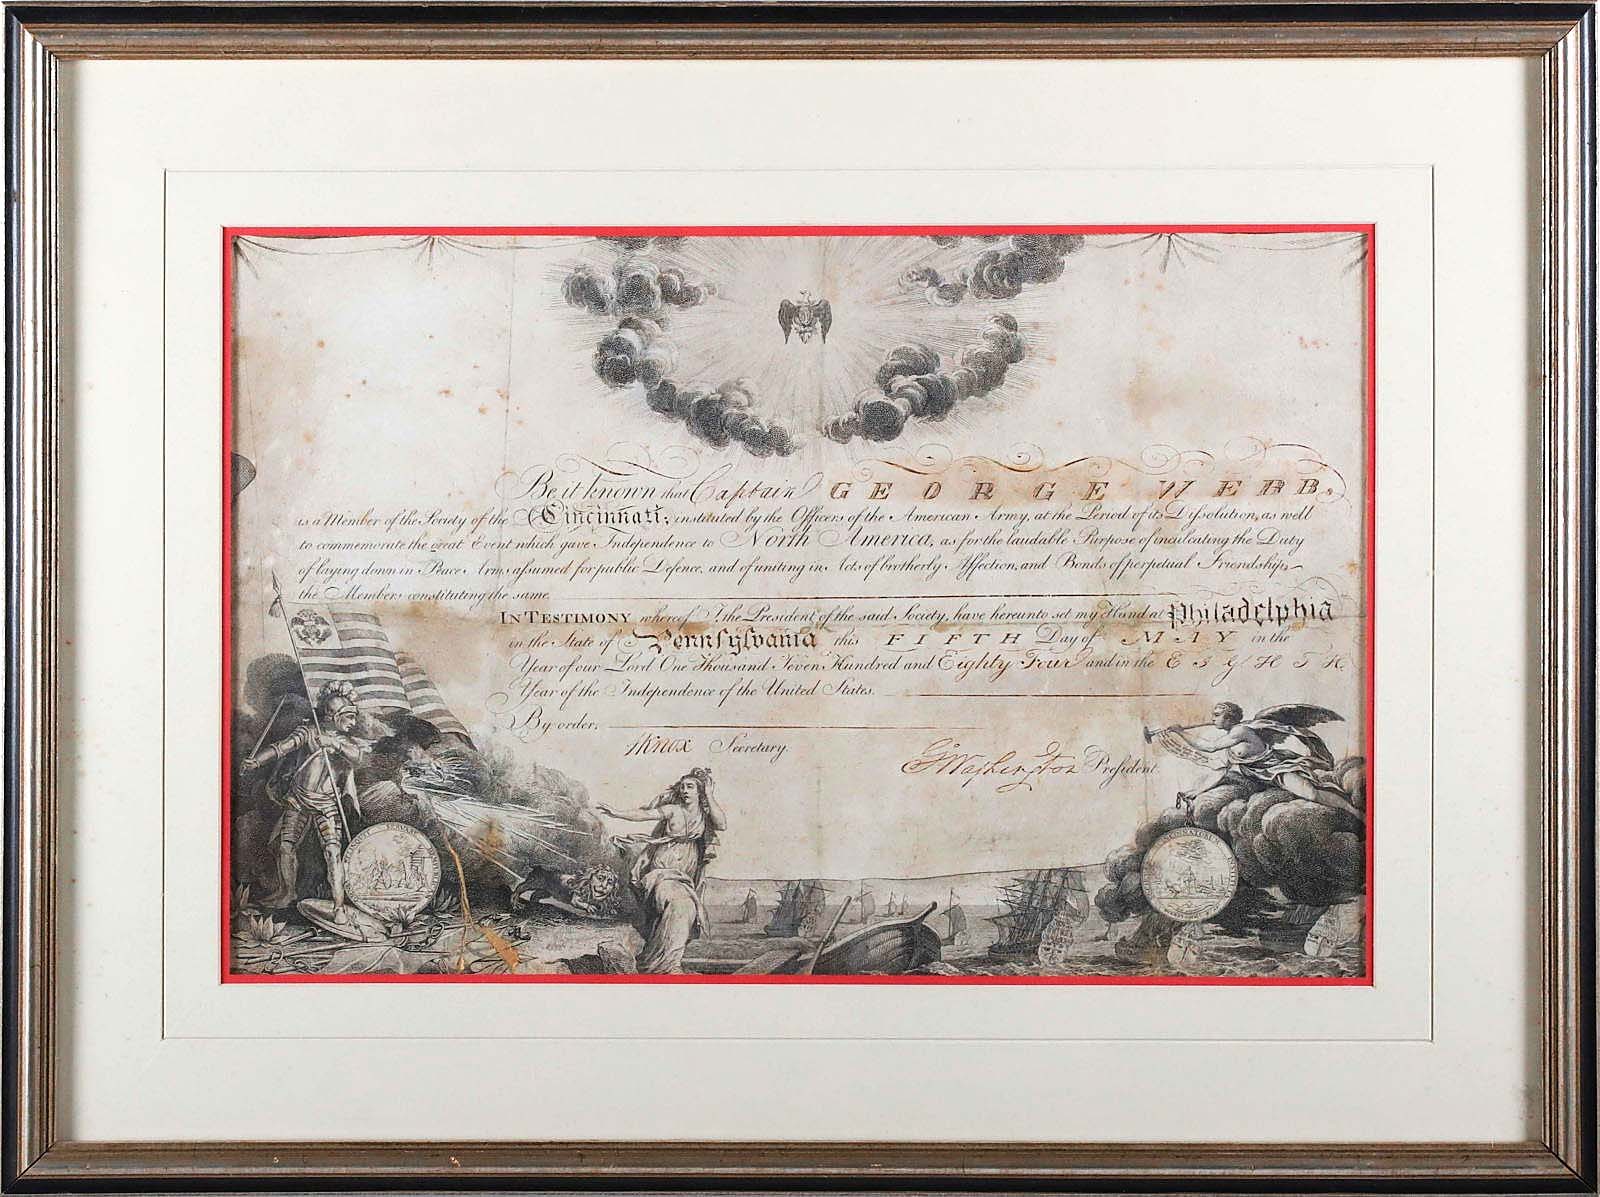 Be it known that Captain GEORGE WEBB,
is a Member of the Society of the Cincinnati; instituted by the Officers of the American Army, at the Period of its Dissolution, as well
to commemorate the great Event which gave Independence to North America, as for the laudable Purpose of inculcating the Duty
of laying down in Peace Arms assumed for public Defence, and of uniting in Acts of brotherly Affection, and Bonds of perpetual Friendship,
the Members constituting the same.
IN TESTIMONY whereof I, the President of the said Society, have hereunto set my Hand at Philadelphia
in the State of Pennsylvania this FIFTH Day of MAY in the
Year of our Lord One Thousand Seven Hundred and Eighty Four and in the EIGHTH
Year of the Independence of the United States.
By order,
HKnox Secretary.
G:Washington President.